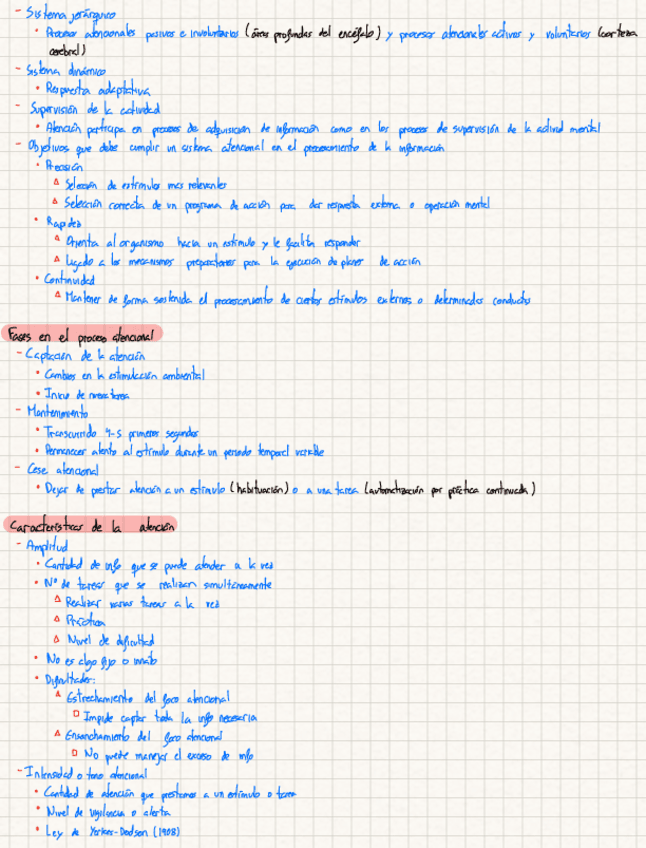 - Sistema jerárquico
• Procesos atencionales pasivos e involuntarios (áreas profundas del encéfalo) y procesos atencionales activos y voluntarios (corteza
cerebral)
- Sistema dinámico
• Respuesta adaptativa
- Supervisión de la actividad
• Atención participa en procesos de adquisición de información como en los procesos de supervisión de la actividad mental
- Objetivos que debe cumplir un sistema atencional en el procesamiento de la información
• Precisión
△ Selección de estímulos más relevantes
△ Selección correcta de un programa de acción para dar respuesta externa o operación mental
• Rapidez
△ Orienta al organismo hacia un estímulo y le facilita responder
△ Ligado a los mecanismos preparatorios para la ejecución de planes de acción
• Continuidad
△ Mantener de forma sostenida el procesamiento de ciertos estímulos externos o determinadas conductas
Fases en el proceso atencional
- Captación de la atención
• Cambios en la estimulación ambiental
• Inicio de nueva tarea
- Mantenimiento
• Transcurrido 4-5 primeros segundos
• Permanecer atento al estímulo durante un periodo temporal variable
- Cese atencional
• Dejar de prestar atención a un estímulo (habituación) o a una tarea (automatización por práctica continuada)
Características de la atención
- Amplitud
• Cantidad de info que se puede atender a la vez
• Nº de tareas que se realizan simultáneamente
△ Realizar varias tareas a la vez
△ Práctica
△ Nivel de dificultad
• No es algo fijo o innato
• Dificultades:
△ Estrechamiento del foco atencional
□ Impide captar toda la info necesaria
△ Ensanchamiento del foco atencional
□ No puede manejar el exceso de info
- Intensidad o tono atencional
• Cantidad de atención que prestamos a un estímulo o tarea
• Nivel de vigilancia o alerta
• Ley de Yerkes-Dodson (1908)